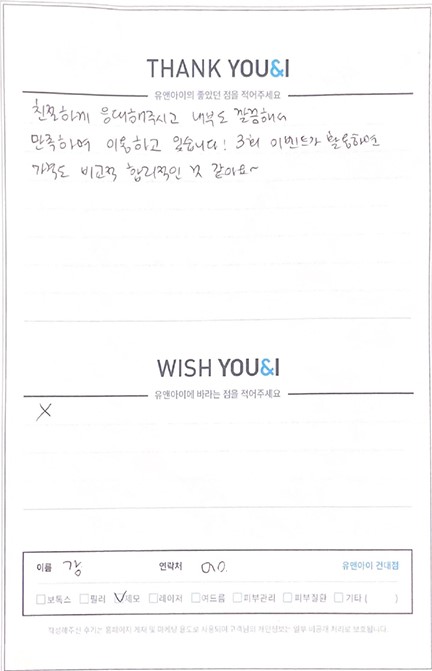 THANK YOU&I
유앤아이의 좋았던 점을 적어주세요
친절하게 응대해주시고 내부도 깔끔해서
만족하며 이용하고 있습니다! 3회 이벤트가 활용하면
가격도 비교적 합리적인 것 같아요~
WISH YOU&I
유앤아이에 바라는 점을 적어주세요
X
이름 강 연락처 010. 유앤아이 건대점
보톡스 필러 제모 레이저 여드름 피부관리 피부질환 기타 ( )
작성해주신 후기는 홈페이지 게재 및 마케팅 용도로 사용되며 고객님의 개인정보는 일부 비공개 처리로 보호됩니다.